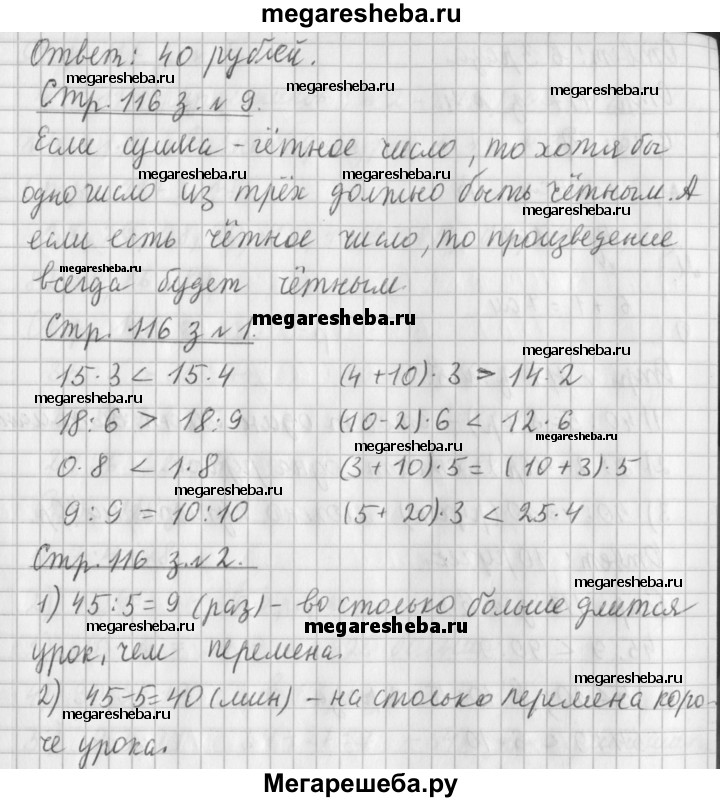 megaresheba.ru
Ответ: 40 рублей.
megaresheba.ru
Стр. 116 з. № 9.
megaresheba.ru
Если сумма - чётное число, то хотя бы
megaresheba.ru megaresheba.ru
одно число из трёх должно быть чётным. А
megaresheba.ru
если есть чётное число, то произведение
megaresheba.ru
всегда будет чётным
Стр. 116 з № 1.
megaresheba.ru
megaresheba.ru
15·3 < 15·4 (4+10)·3 > 14·2
megaresheba.ru
18:6 > 18:9 (10-2)·6 < 12·6
megaresheba.ru megaresheba.ru
0·8 < 1·8 (3+10)·5 = (10+3)·5
megaresheba.ru
9:9 = 10:10 (5+20)·3 < 25·4
Стр. 116 з. № 2.
megaresheba.ru
1) 45:5=9 (раз) - во столько больше длится
megaresheba.ru megaresheba.ru
урок, чем перемена.
megaresheba.ru
2) 45-5=40 (мин) - на столько перемена коро-
megaresheba.ru megaresheba.ru
че урока.
Мегарешеба.ру